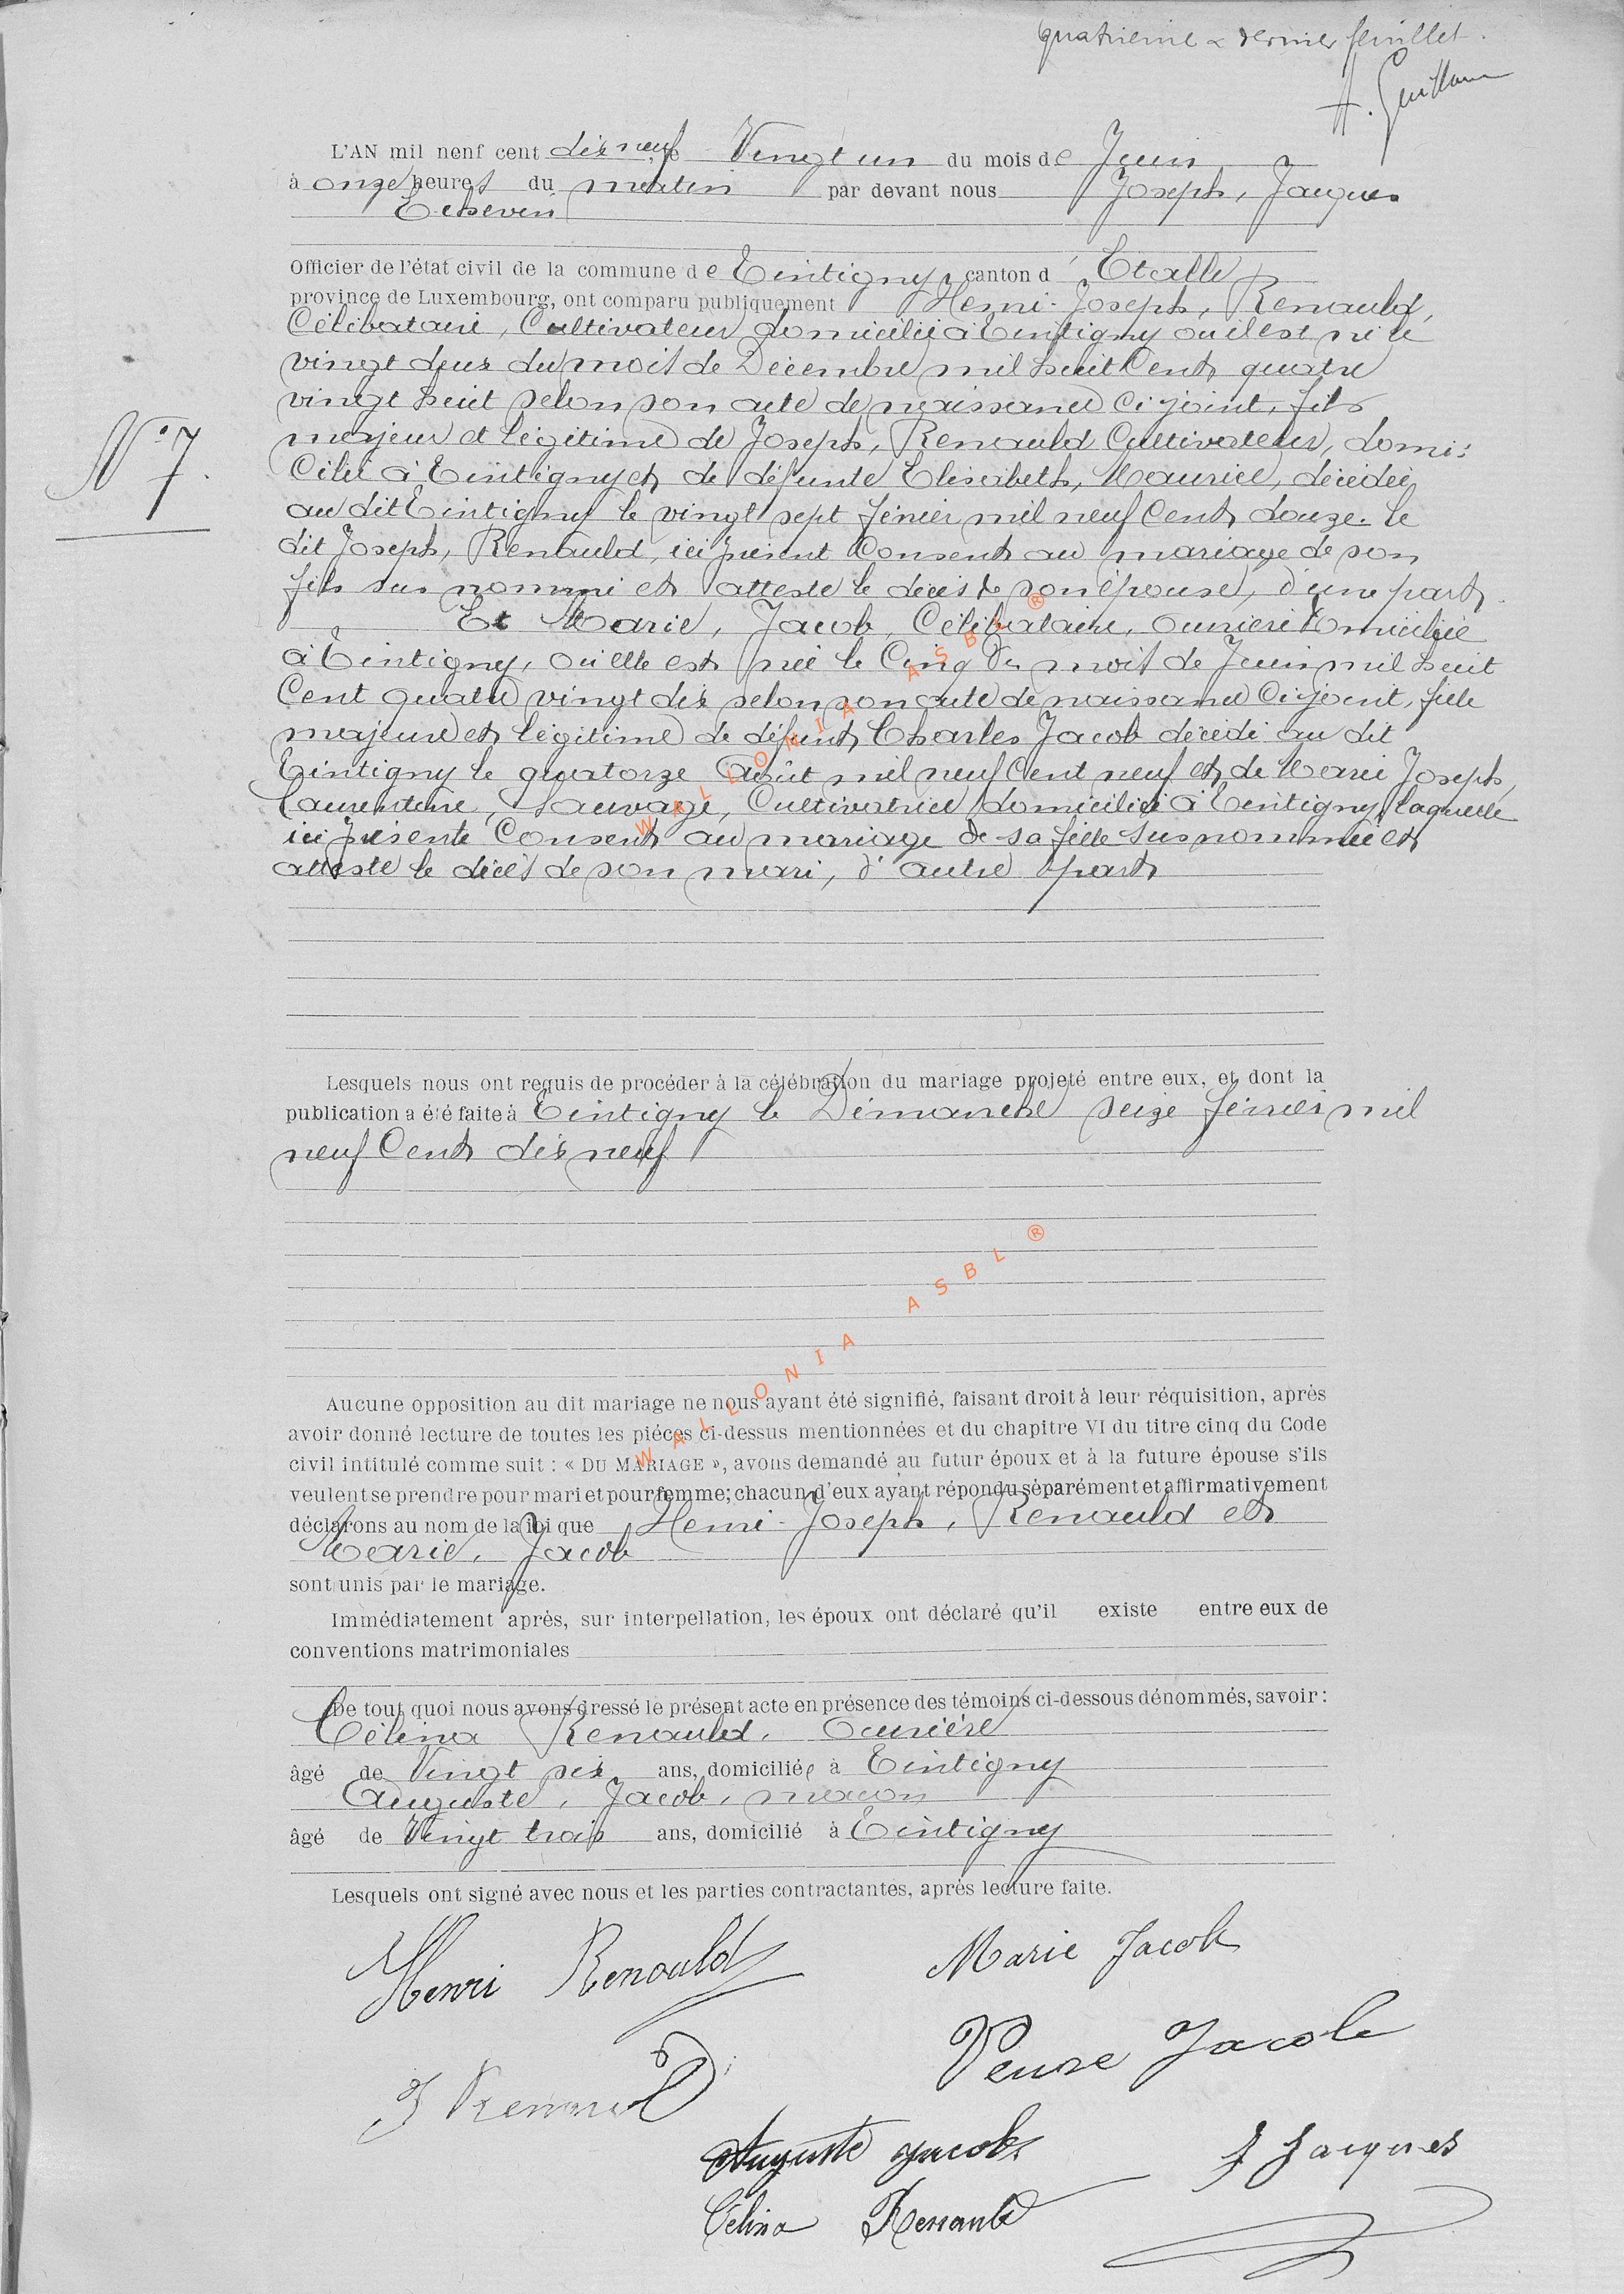 quatrième & dernier feuillet.
A. Guillaume
L'AN mil neuf cent dix neuf, le Vingt un du mois de Juin
à onze heures du matin par devant nous Joseph, Jacques
Echevin
Officier de l'état civil de la commune de Tintigny, canton d' Etalle
province de Luxembourg, ont comparu publiquement Henri-Joseph, Renauld,
Célibataire, Cultivateur domicilié à Tintigny où il est né le
vingt deux du mois de Décembre mil huit Cent quatre
vingt huit selon son acte de naissance Ci joint, fils
N° 7.
majeur et légitime de Joseph, Renauld Cultivateur, domi:
Cilié à Tintigny et de défunte Elisabeth, Maurice, décédée
au dit Tintigny le vingt sept février mil neuf Cent douze. le
dit Joseph, Renauld, ici présent Consent au mariage de son
fils sus nommé et atteste le décès de son épouse, d'une part.
Et Marie, Jacob, Célibataire, ouvrière Domiciliée
à Tintigny, où elle est née le Cinq Du mois de Juin mil huit
Cent quatre vingt dix selon son acte de naissance Ci joint, fille
majeure et légitime de défunt Charles Jacob décédé au dit
Tintigny le quatorze Août mil neuf Cent neuf et de Marie Joseph,
Laurentine, Sauvage, Cultivatrice domiciliée à Tintigny laquelle
ici présente Consent au mariage de sa fille susnommée et
atteste le décès de son mari, d'autre part
Lesquels nous ont requis de procéder à la célébration du mariage projeté entre eux, et dont la
publication a été faite à Tintigny le Dimanche seize février mil
neuf Cent dix neuf
Aucune opposition au dit mariage ne nous ayant été signifié, faisant droit à leur réquisition, après
avoir donné lecture de toutes les pièces ci-dessus mentionnées et du chapitre VI du titre cinq du Code
civil intitulé comme suit : « DU MARIAGE », avons demandé au futur époux et à la future épouse s'ils
veulent se prendre pour mari et pour femme; chacun d'eux ayant répondu séparément et affirmativement
déclarons au nom de la loi que Henri-Joseph, Renauld et
Marie, Jacob
sont unis par le mariage.
Immédiatement après, sur interpellation, les époux ont déclaré qu'il existe entre eux de
conventions matrimoniales
De tout quoi nous avons dressé le présent acte en présence des témoins ci-dessous dénommés, savoir :
Célina Renauld, Ouvrière
âgé de Vingt six ans, domiciliée à Tintigny
Auguste, Jacob, maçon
âgé de Vingt trois ans, domicilié à Tintigny
Lesquels ont signé avec nous et les parties contractantes, après lecture faite.
Henri Renauld Marie Jacob
Veuve Jacob
J Renauld
Auguste Jacob J Jacques
Célina Renauld
WALLONIA ASBL ®
WALLONIA ASBL ®